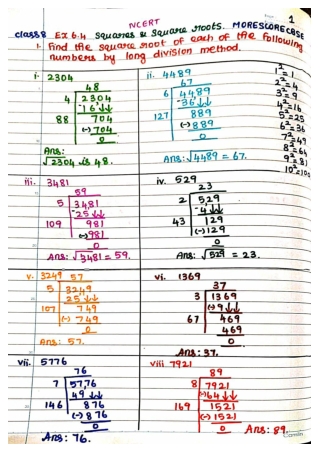 1
NCERT
class 8 Ex 6.4 squares & square roots. MORESCORECBSE
1. Find the square root of each of the following
numbers by long division method.
i. 2304
48
4 2304
-16↓↓
88 704
(-) 704
0
Ans:
√2304 is 48.
ii. 4489
47
6 4489
-36↓↓
127 889
(-) 889
0
Ans: √4489 = 67.
1²=1
2²=4
3²=9
4²=16
5²=25
6²=36
7²=49
8²=64
9²=81
10²=100
iii. 3481
59
5 3481
-25↓↓
109 981
(-) 981
0
Ans: √3481 = 59.
iv. 529
23
2 529
-4↓↓
43 129
(-) 129
0
Ans: √529 = 23.
v. 3249 57
5 3249
25↓↓
107 749
(-) 749
0
Ans: 57.
vi. 1369
37
3 1369
(-) 9↓↓
67 469
469
0
Ans: 37.
vii. 5776
76
7 5776
49↓↓
146 876
(-) 876
0
Ans: 76.
viii 7921
89
8 7921
(-) 64↓↓
169 1521
(-) 1521
0
Ans: 89.